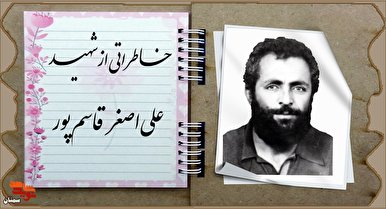 خاطراتی از شهید
علی اصغر قاسم پور
سمنان